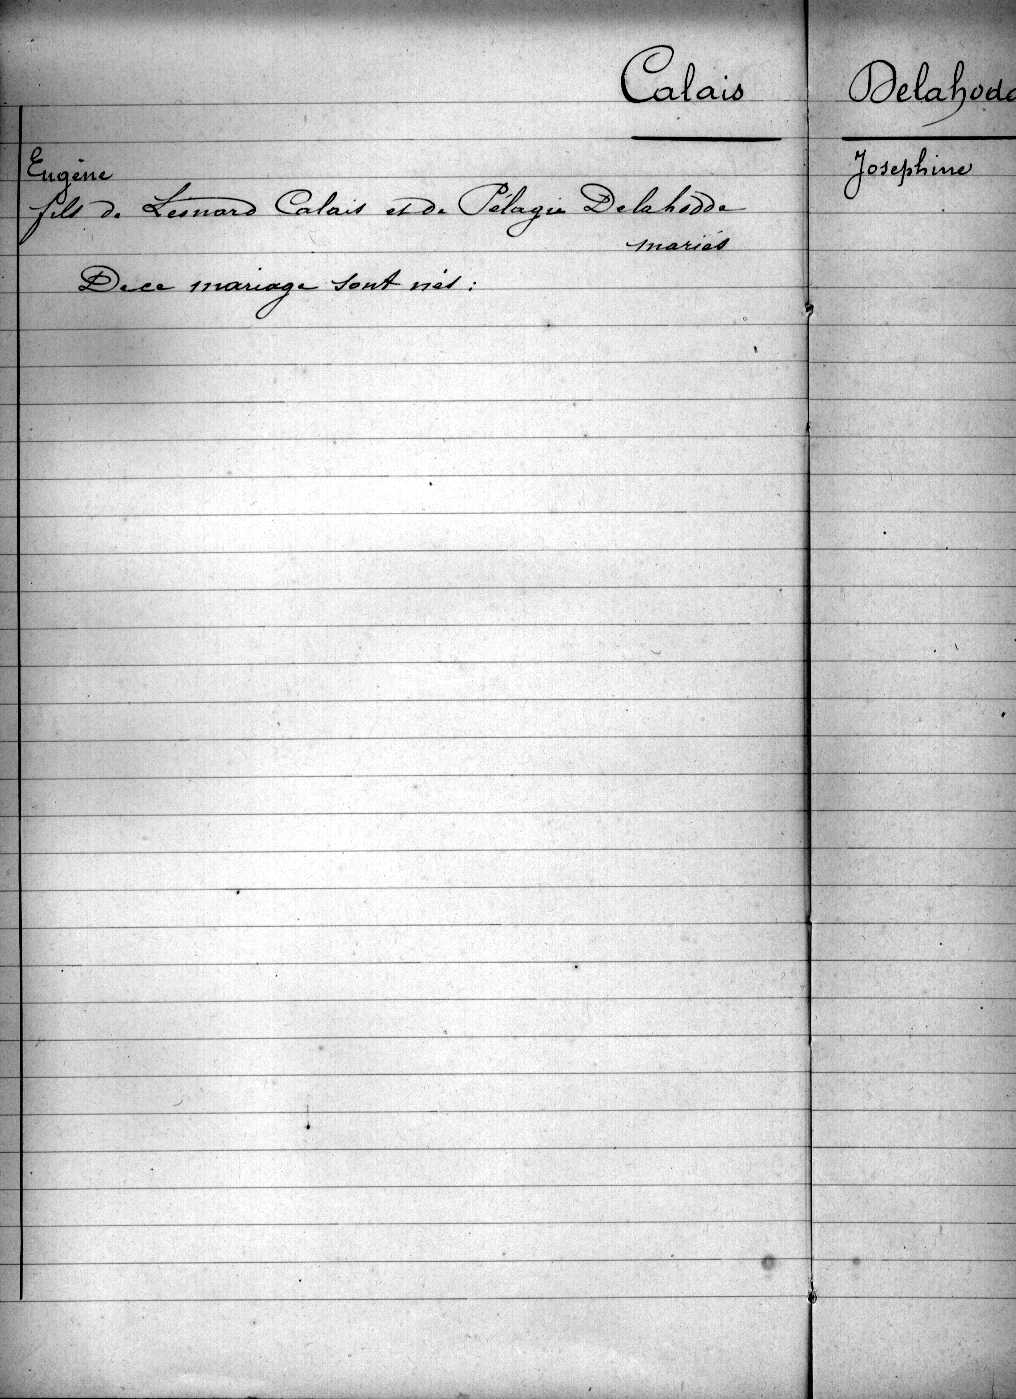 Calais Delahodd
Eugène Josephine
fils de Leonard Calais et de Pélagie Delahodde
mariés
De ce mariage sont nés :